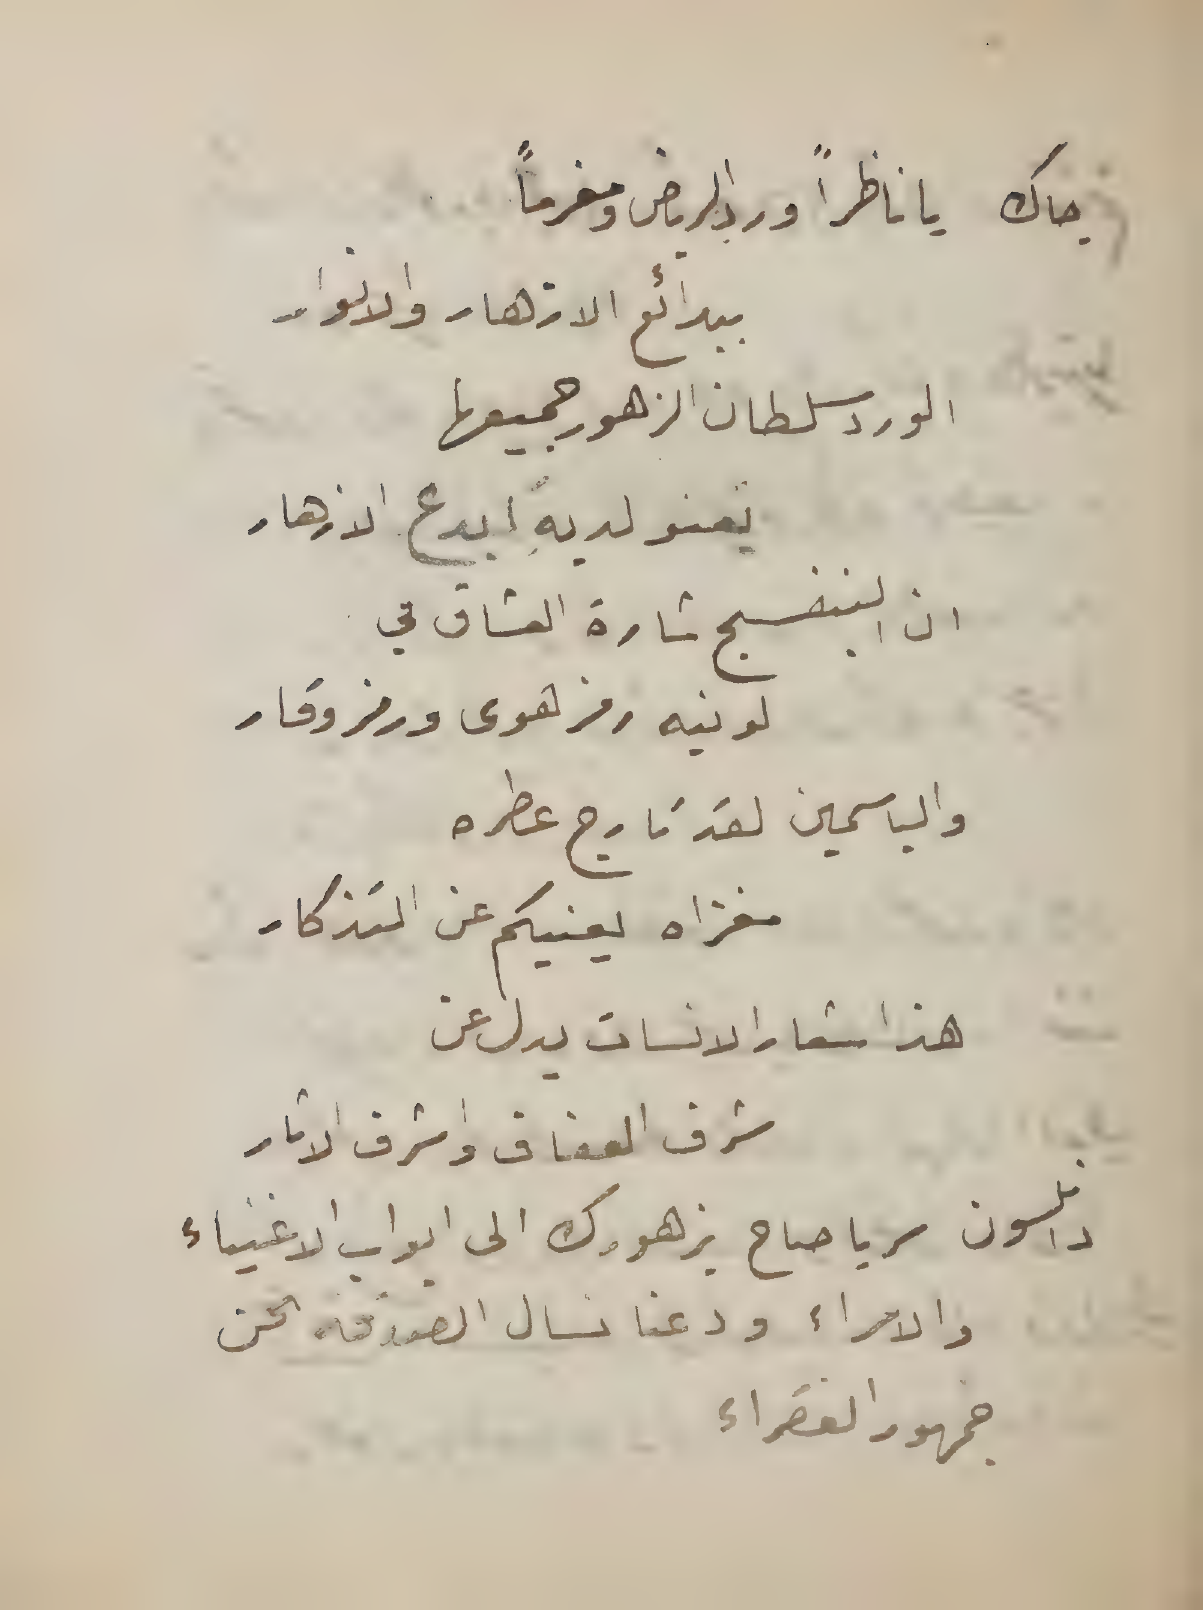 جاك يا ناظراً ورد الرياض ومغرماً
ببدائع الازهار والانوار
الورد سلطان الزهور جميعها
تعنو لديهِ ابدع الازهار
ان البنفسج شارة العشاق في
لونيه رمز هوى ورمز وقار
والياسمين لقد تارج عطره
مغزاه يغنيكم عن التذكار
هذا شعار الانسات يدل عن
شرف العفاف واشرف الاثار
سر يا صاح بزهورك الى ابواب الاغنياء
والامراء ودعنا نسال الصدقة نحن
جمهور الفقراء